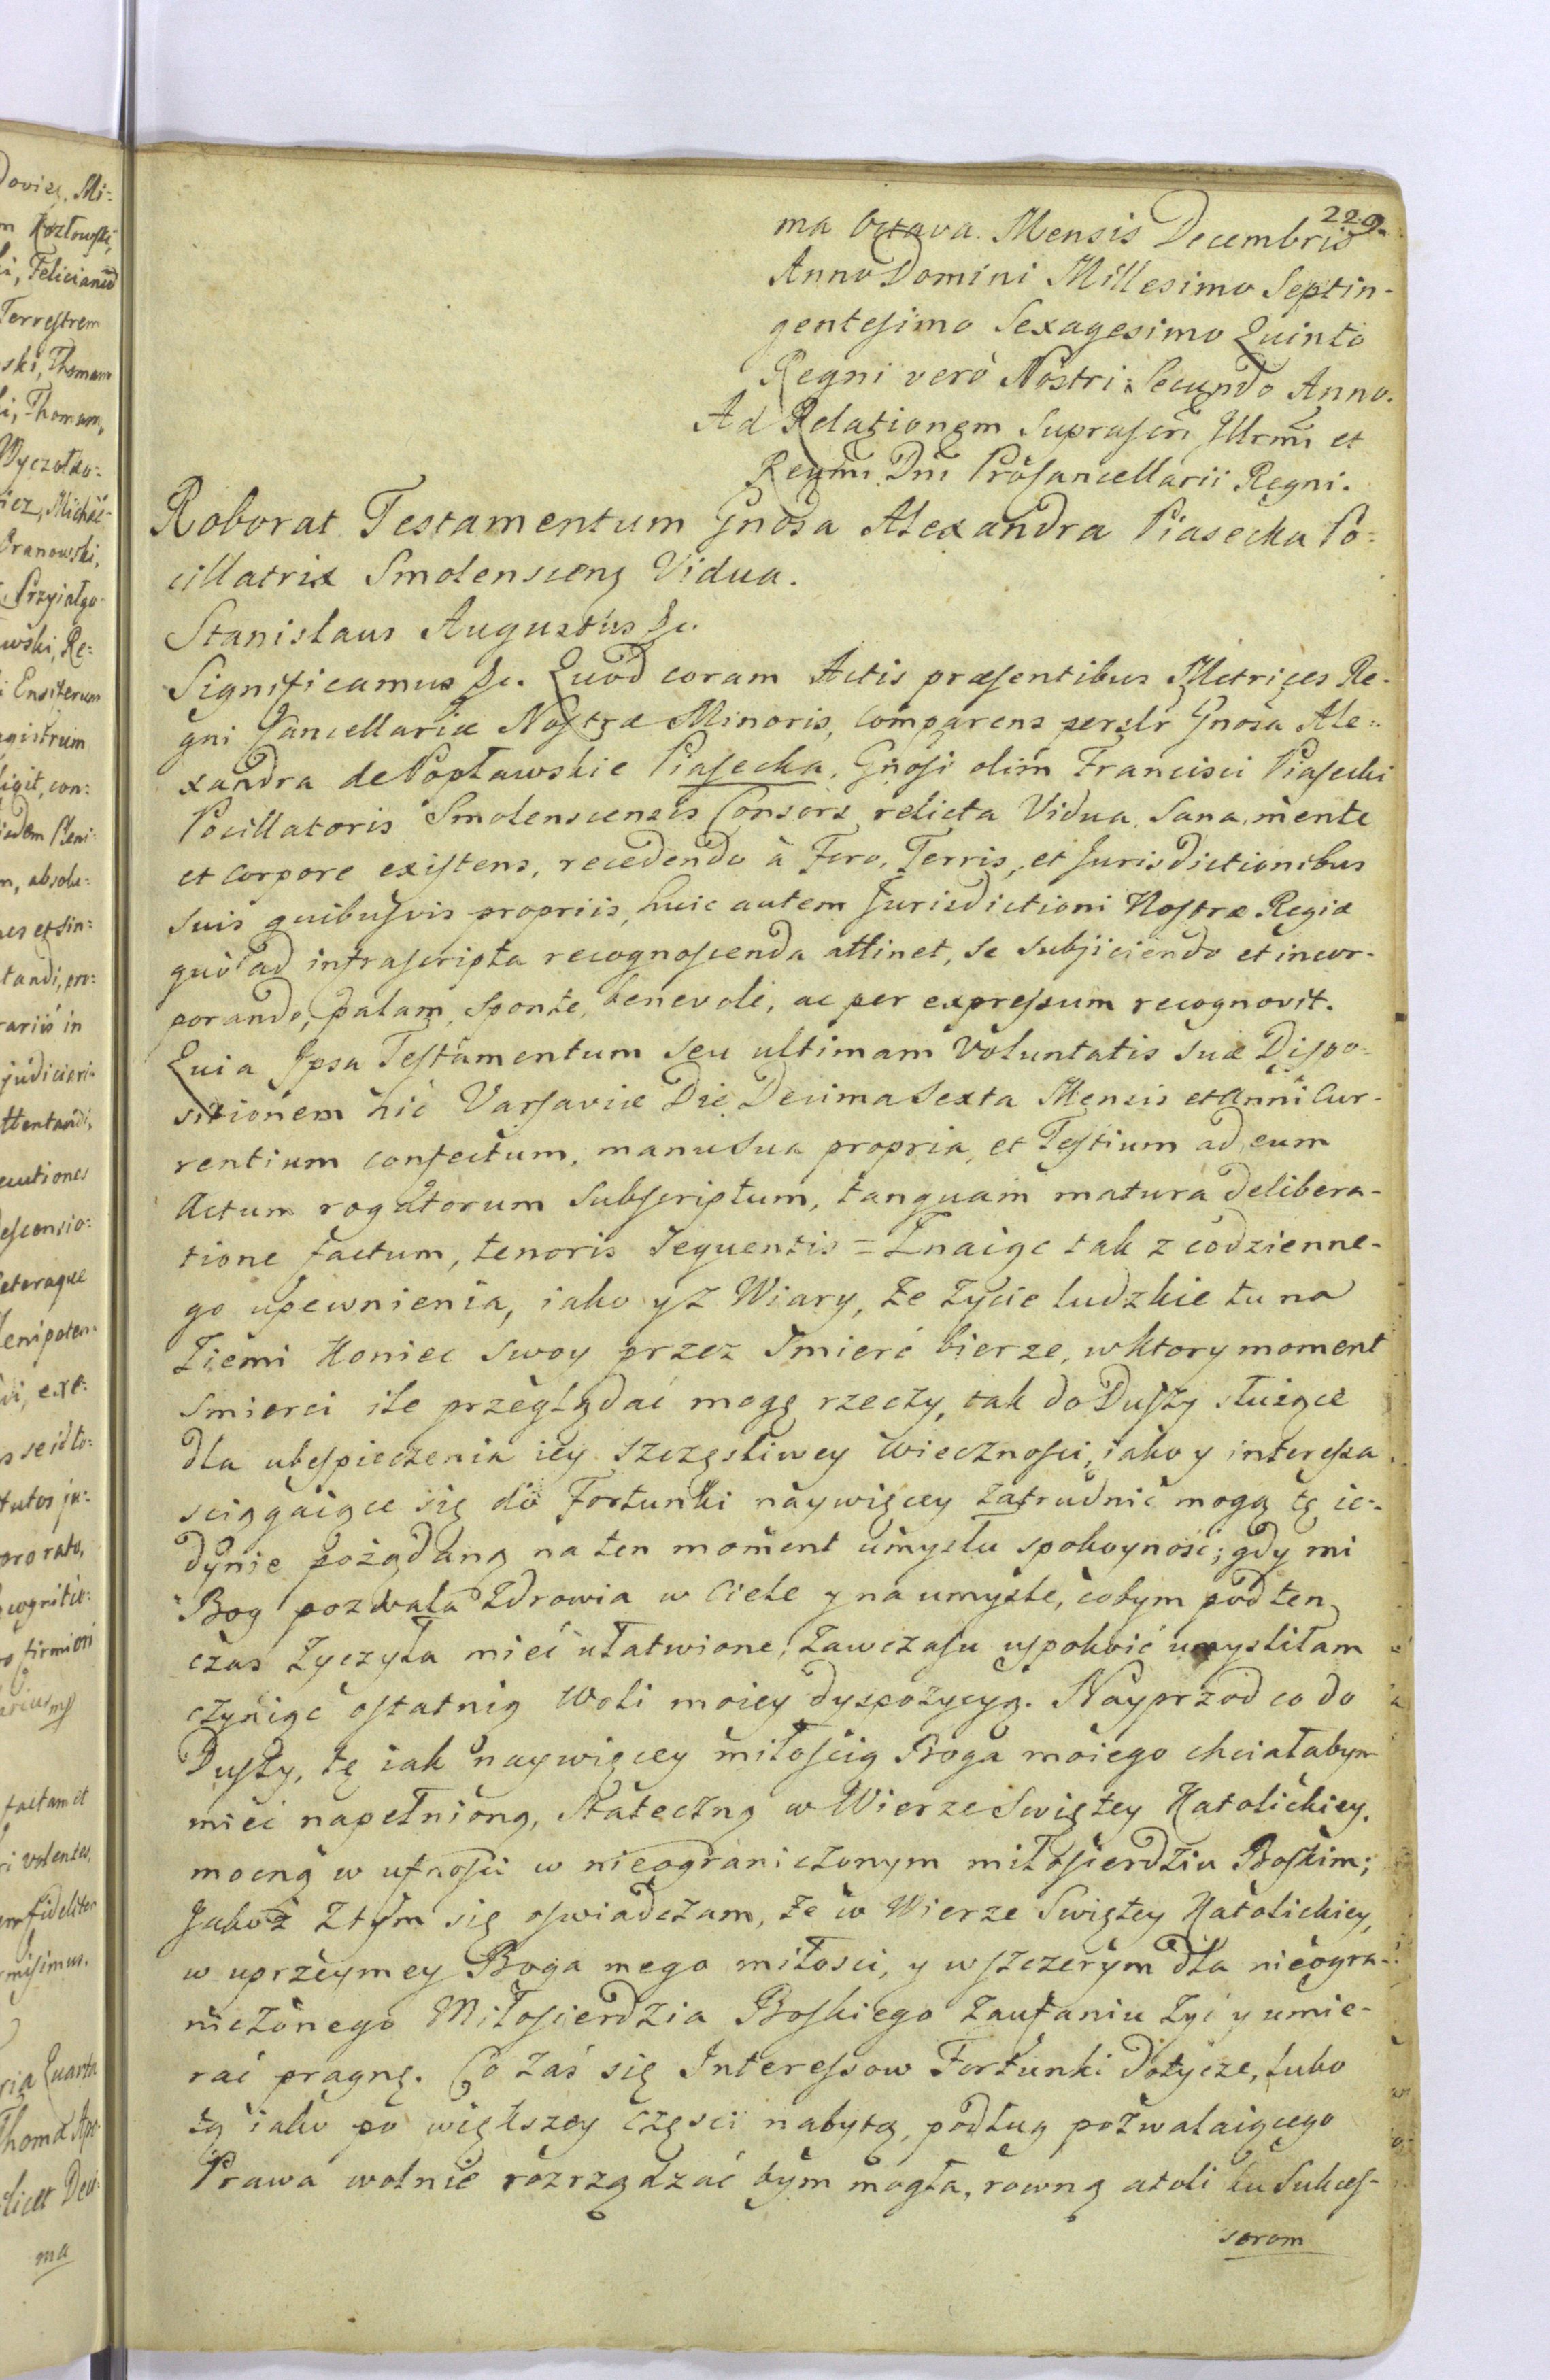 229.
ma Octava Mensis Decembris
Anno Domini Millesimo Septin-
gentesimo Sexagesimo Quinto
Regni vero Nostri Secundo Anno.
Ad Relationem Suprascri Illrmi et
Rndmi Dni Procancellarii Regni.
Roborat Testamentum Gnosa Alexandra Piasecka Po-
cillatrix Smolenscens Vidua.
Stanislaus Augustus &c.
Significamus &c. Quod coram Actis præsentibus Metrices Re-
gni Cancellariæ Nostræ Minoris, comparens perslr Gnosa Ale-
xandra de Popławskie Piasecka, Gnosi olim Francisci Piasecki
Pocillatoris Smolenscensis Consors relicta Vidua, Sana mente
et corpore existens, recedendo à Foro, Terris, et Jurisdictionibus
suis quibusvis propriis, huic autem Jurisdictioni Nostræ Regiæ
quo ad infrascripta recognoscenda attinet, se subjiciendo et incor-
porando, palam, sponte, benevole, ac per expressum recognovit.
Quia Ipsa Testamentum seu ultimam Voluntatis suæ Dispo-
sitionem hic Varsaviæ Die Decima Sexta Mensis et Anni Cur-
rentium confectum, manu sua propria, et Testium ad eum
Actum rogatorum Subscriptum, tanquam matura delibera-
tione factum, tenoris sequentis = Znaiąc tak z codzienne-
go upewnienia, iako y z Wiary, że życie ludzkie tu na
Ziemi Koniec swoy przez Smierć bierze, w ktory moment
Smierci ile przeglądać mogę rzeczy, tak do Duszy służące
dla ubespieczenia iey szczęsliwey wiecznosci, iako y interessa
sciągaiące się do Fortunki naywięcey zatrudnić mogą tę ie-
dynie pożądaną na ten moment umysłu spokoyność; gdy mi
Bog pozwala Zdrowia w Ciele y na umysle, cobym pod ten
czas życzyła mieć ułatwione, zawczasu uspokoić umysliłam
czyniąc ostatnią Woli moiey dyspozycyą. Nayprzod co do
Duszy, tę iak naywięcey miłoscią Boga moiego chciałabym
mieć napełnioną, stateczną w Wierze Swiętey Katolickiey,
mocną w ufnosci w nieograniczonym miłosierdziu Boskim;
Jakoż z tym się oswiadczam, że w Wierze Swiętey Katolickiey,
w uprzeymey Boga mego miłosci, y w szczerym dla nieogra-
niczonego Miłosierdzia Boskiego zaufaniu żyć y umie-
rać pragnę. Co zaś się Interessow Fortunki dotycze, lubo
tą iako po większey częsci nabytą, podług pozwalaiącego
Prawa wolnie rozrządzać bym mogła, rowną atoli ku Sukces-
sorom